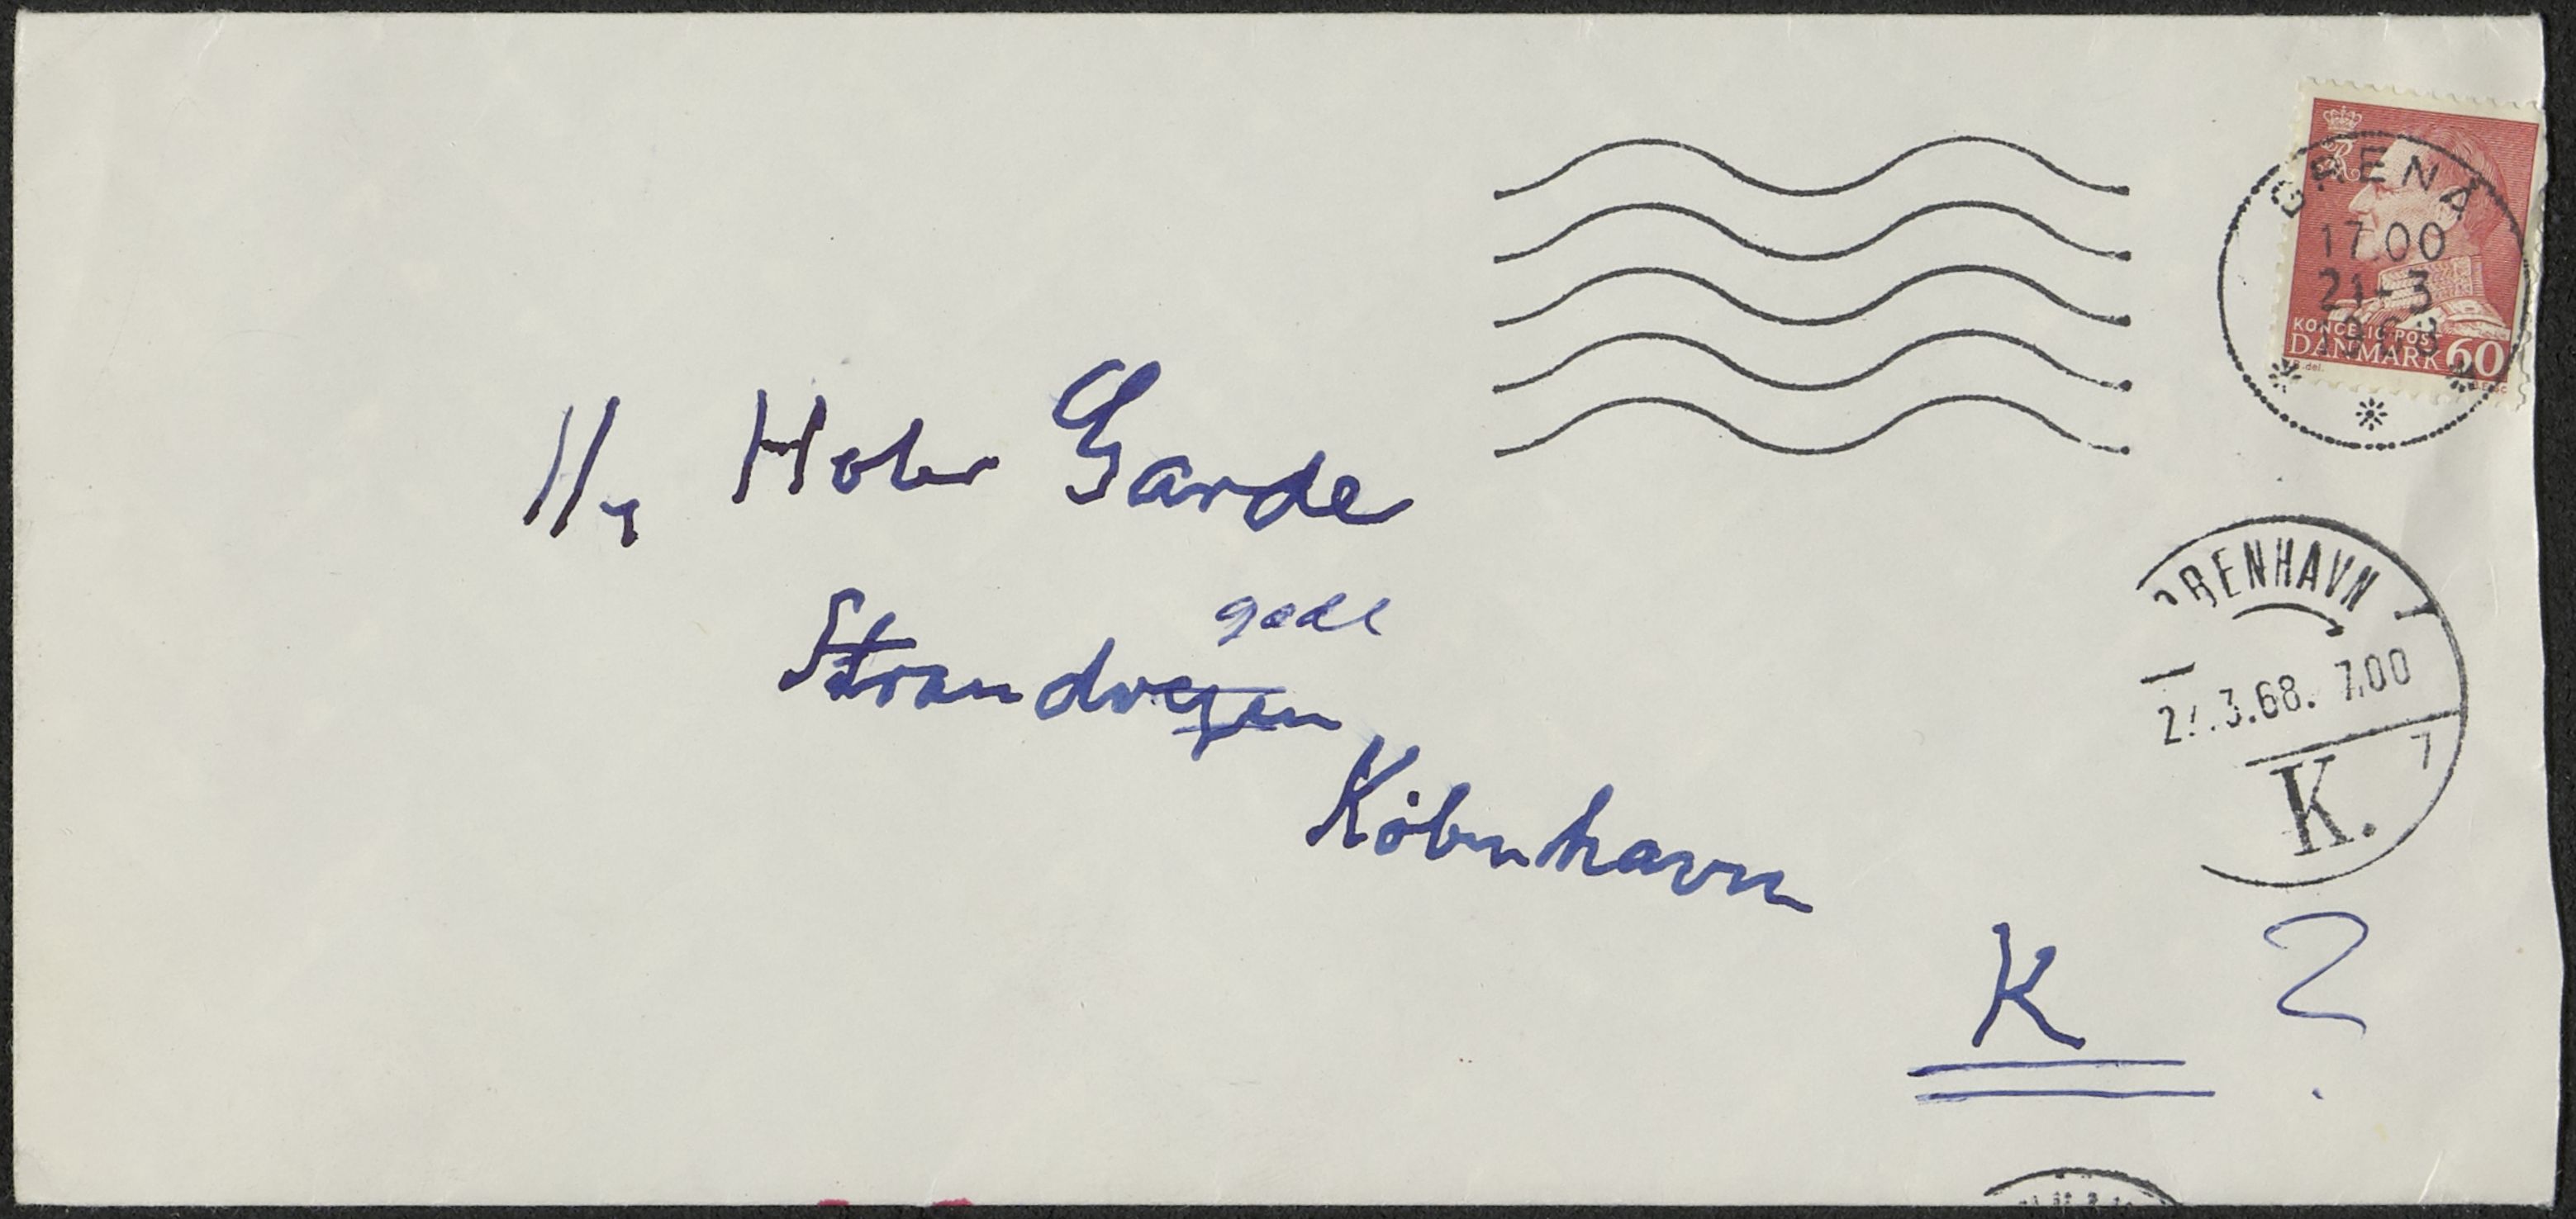 GRENÅ
17.00
21-3
1968
KONGELIG POST
DANMARK 60
Hr Holer Garde
gade
Strandvejen
København
K ?
KØBENHAVN
3.68. 7.00
7
K.